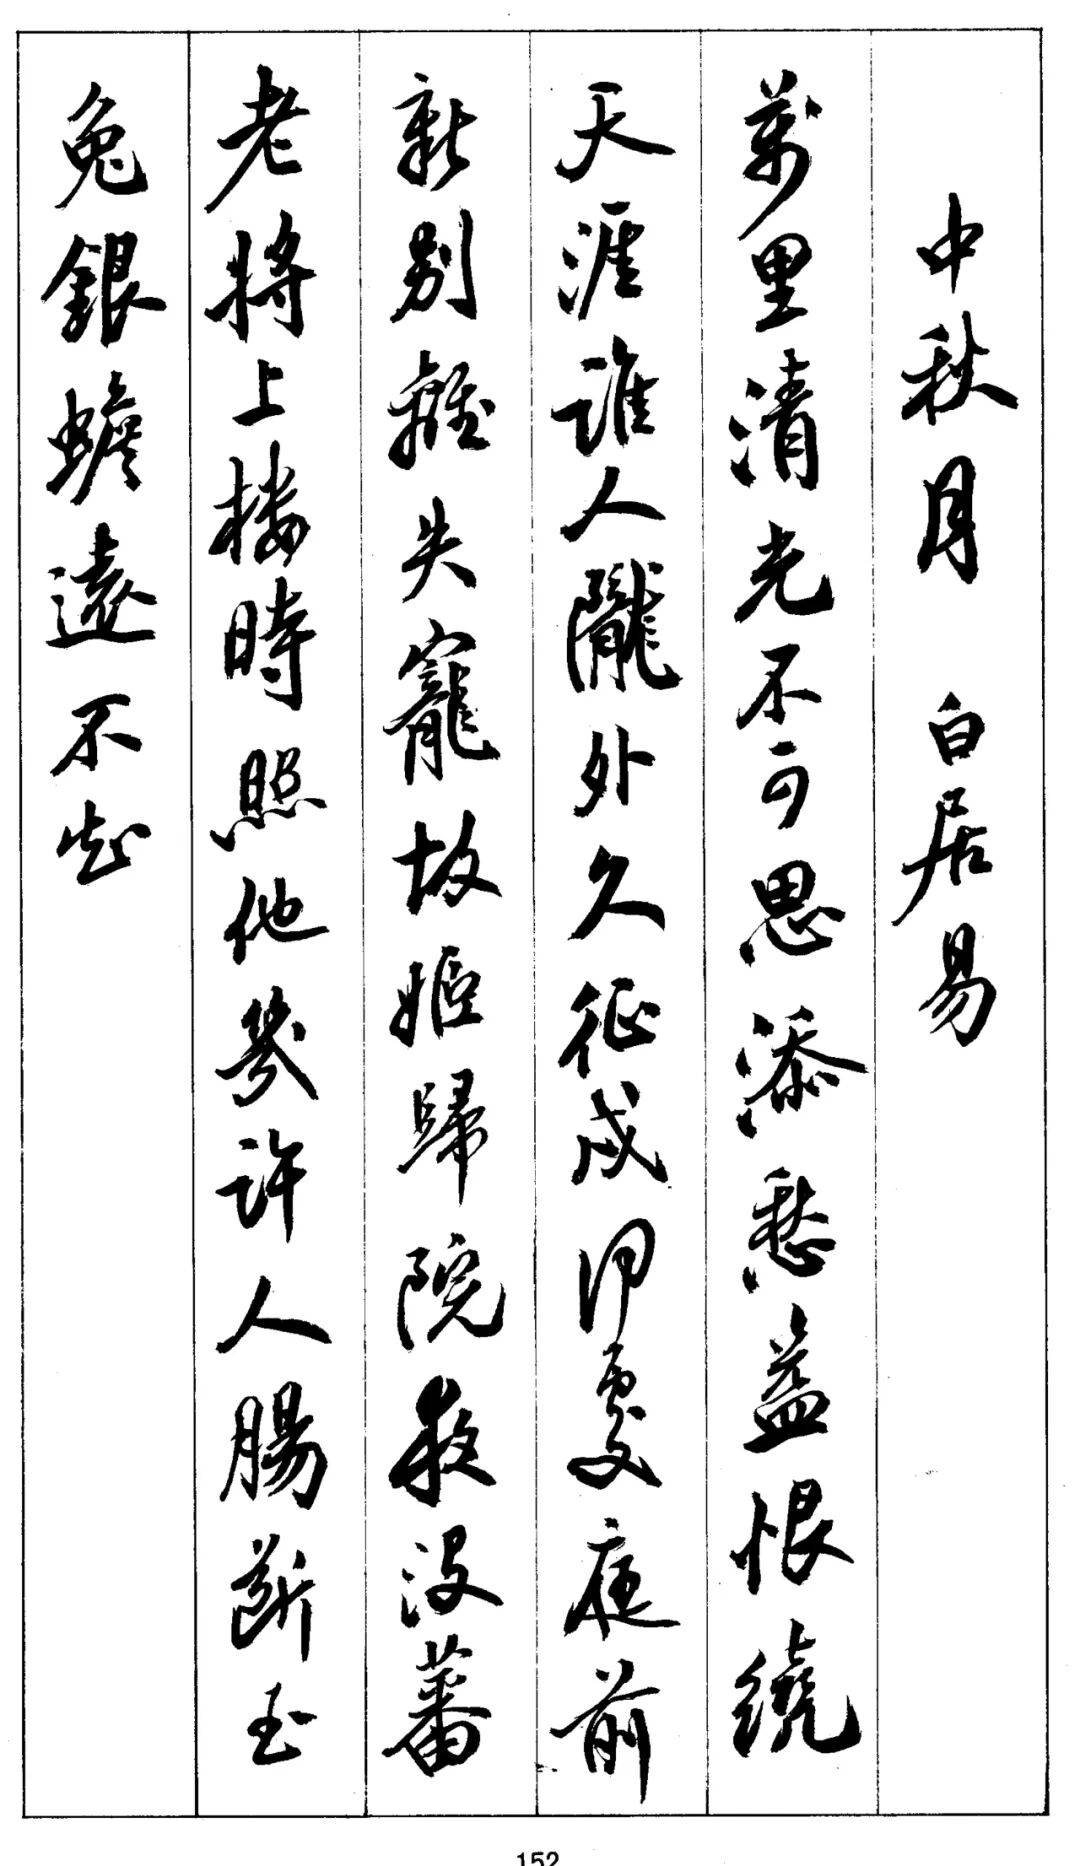 中秋月 白居易
萬里清光不可思添愁益恨繞
天涯誰人隴外久征戍何處庭前
新別離失寵故姬歸院夜没蕃
老將上樓時照他幾許人腸斷玉
兔銀蟾遠不知
152